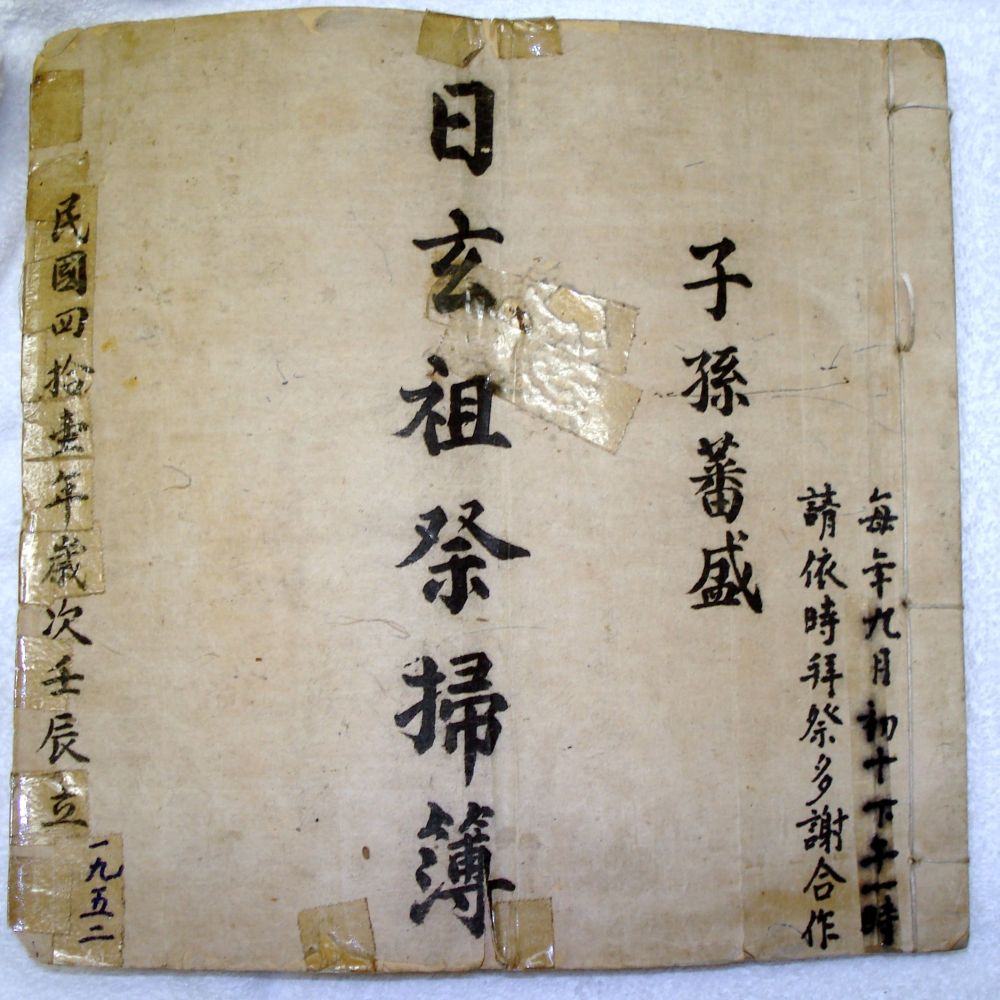 每年九月初十下午一時
請依時拜祭多謝合作
子孫蕃盛
日玄祖祭掃簿
民國四拾壹年歲次壬辰立
一九五二